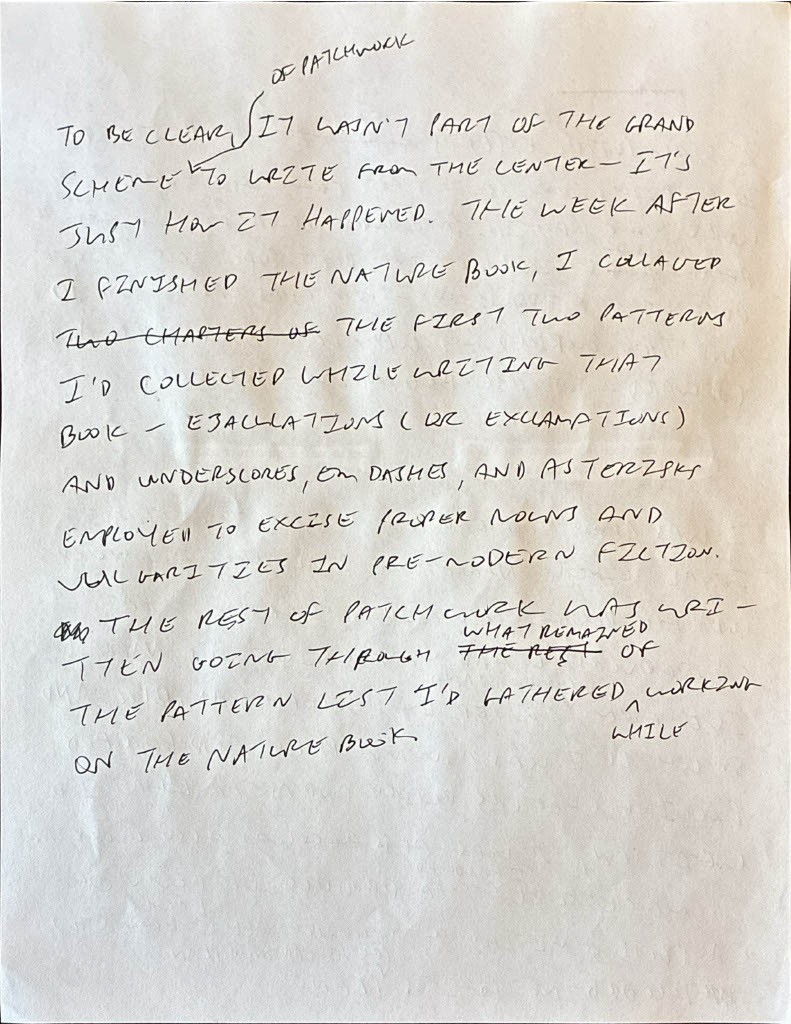 OF PATCHWORK
TO BE CLEAR, IT WASN'T PART OF THE GRAND
SCHEME TO WRITE FROM THE CENTER — IT'S
JUST HOW IT HAPPENED. THE WEEK AFTER
I FINISHED THE NATURE BOOK, I COLLAGED
TWO CHAPTERS OF THE FIRST TWO PATTERNS
I'D COLLECTED WHILE WRITING THAT
BOOK — EJACULATIONS (OR EXCLAMATIONS)
AND UNDERSCORES, EM DASHES, AND ASTERISKS
EMPLOYED TO EXCISE PROPER NOUNS AND
VULGARITIES IN PRE-MODERN FICTION.
THE REST OF PATCHWORK WAS WRI-
WHAT REMAINED
TTEN GOING THROUGH THE REST OF
THE PATTERN LIST I'D GATHERED WORKING
WHILE
ON THE NATURE BOOK